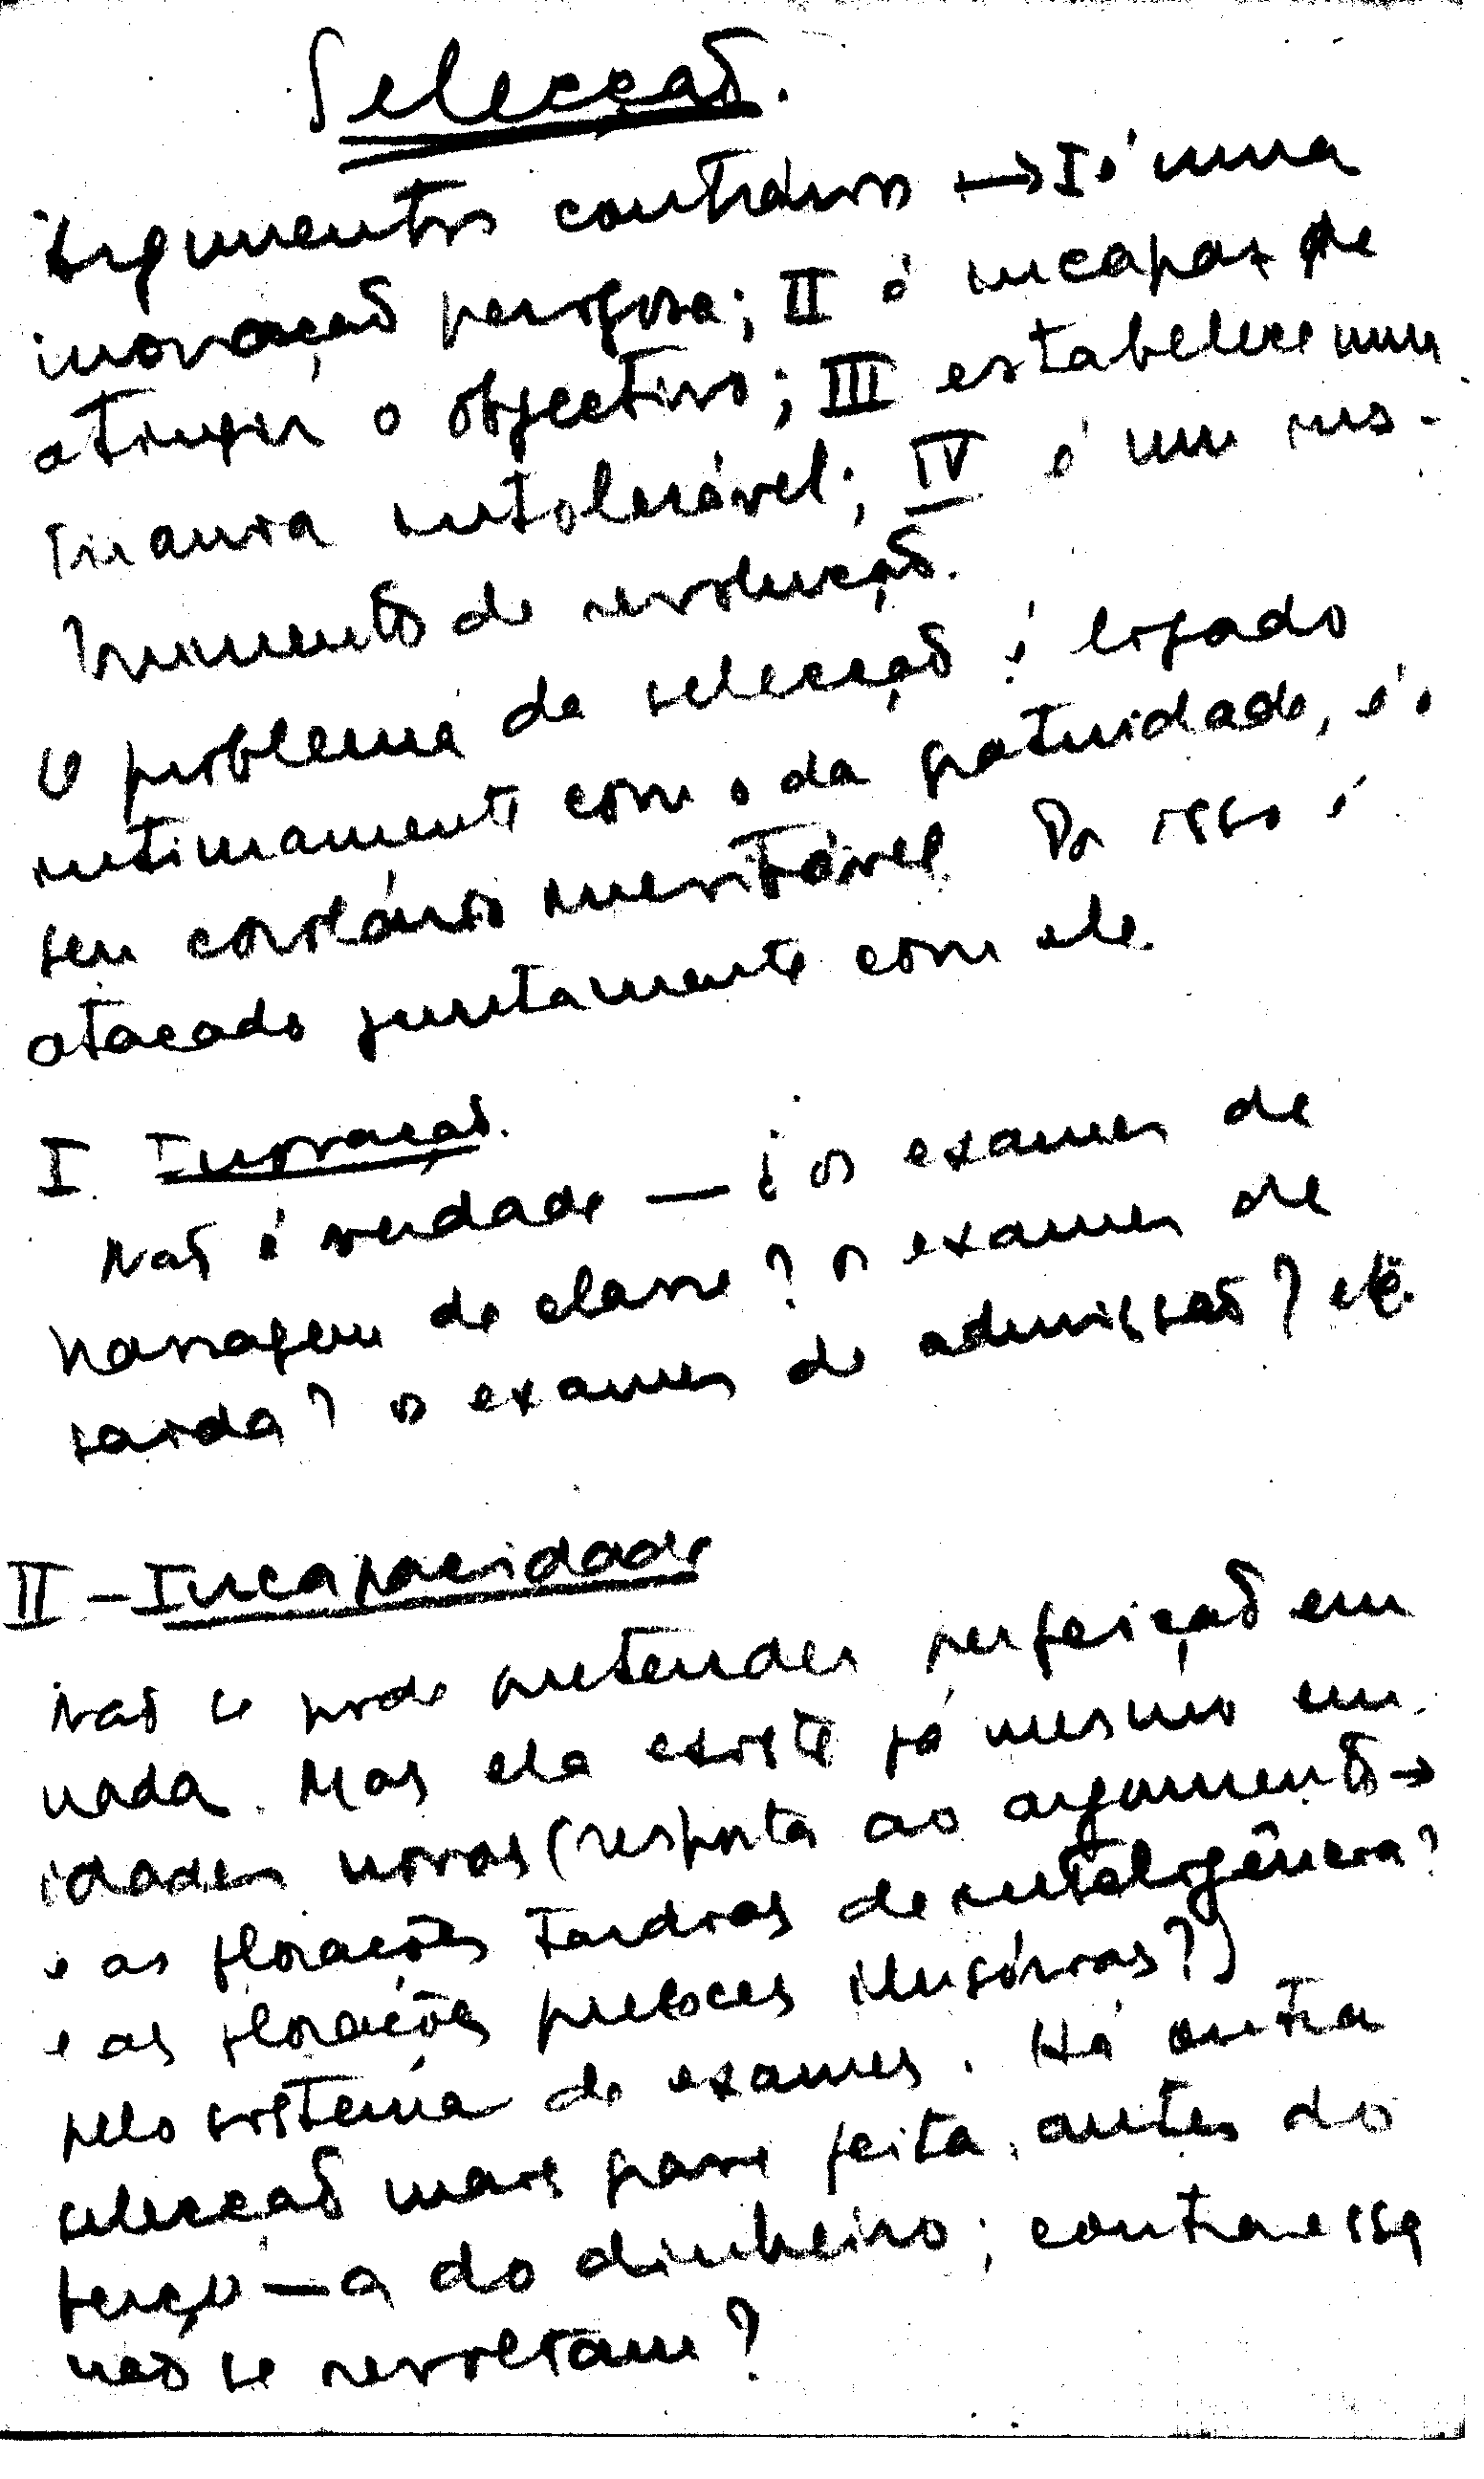 Selecção.
Argumentos contrários → I é uma
inovação perigosa; II é incapaz de
atingir o objectivo; III estabelece uma
tirania intolerável; IV é um ins-
trumento de revolução.
O problema da selecção é ligado
intimamente com o da gratuidade, é o
seu corolário inevitável. Por isso é
atacado juntamente com ele.
I. Inovação.
Não é verdade — ¿ os exames de
passagem de classe? os exames de
saída? os exames de admissão? etc.
II - Incapacidade
Não se pode pretender perfeição em
nada. Mas ela existe já mesmo em
idades novas (resposta ao argumento →
e as florações tardias de inteligência?
e as florações precoces ilusórias?)
pelo sistema de exames. Há outra
selecção mais grave feita antes do
berço — a do dinheiro; contra essa
não se revoltam?